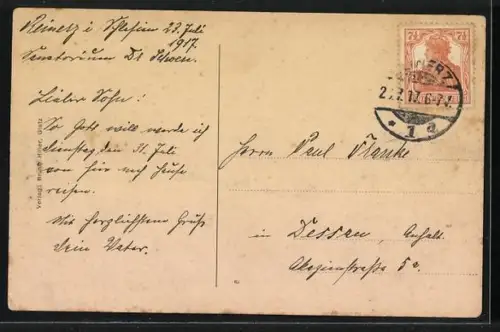 Reinerz i Schlesien 23. Juli
1917.
Sanatorium Dr Schoen.
Lieber Sohn!
So Gott will werde ich
dienstag den 31. Juli
von hier nach Hause
reisen.
Mit herzlichstem Gruß
Dein Vater.
Verlag: Bruno Hiller, Glatz
7½ 7½
REINERZ
23.7.17.6-7N.
* 1 a
Herrn Paul Franke
in Dessau, Anhalt.
Akazienstraße 5a.